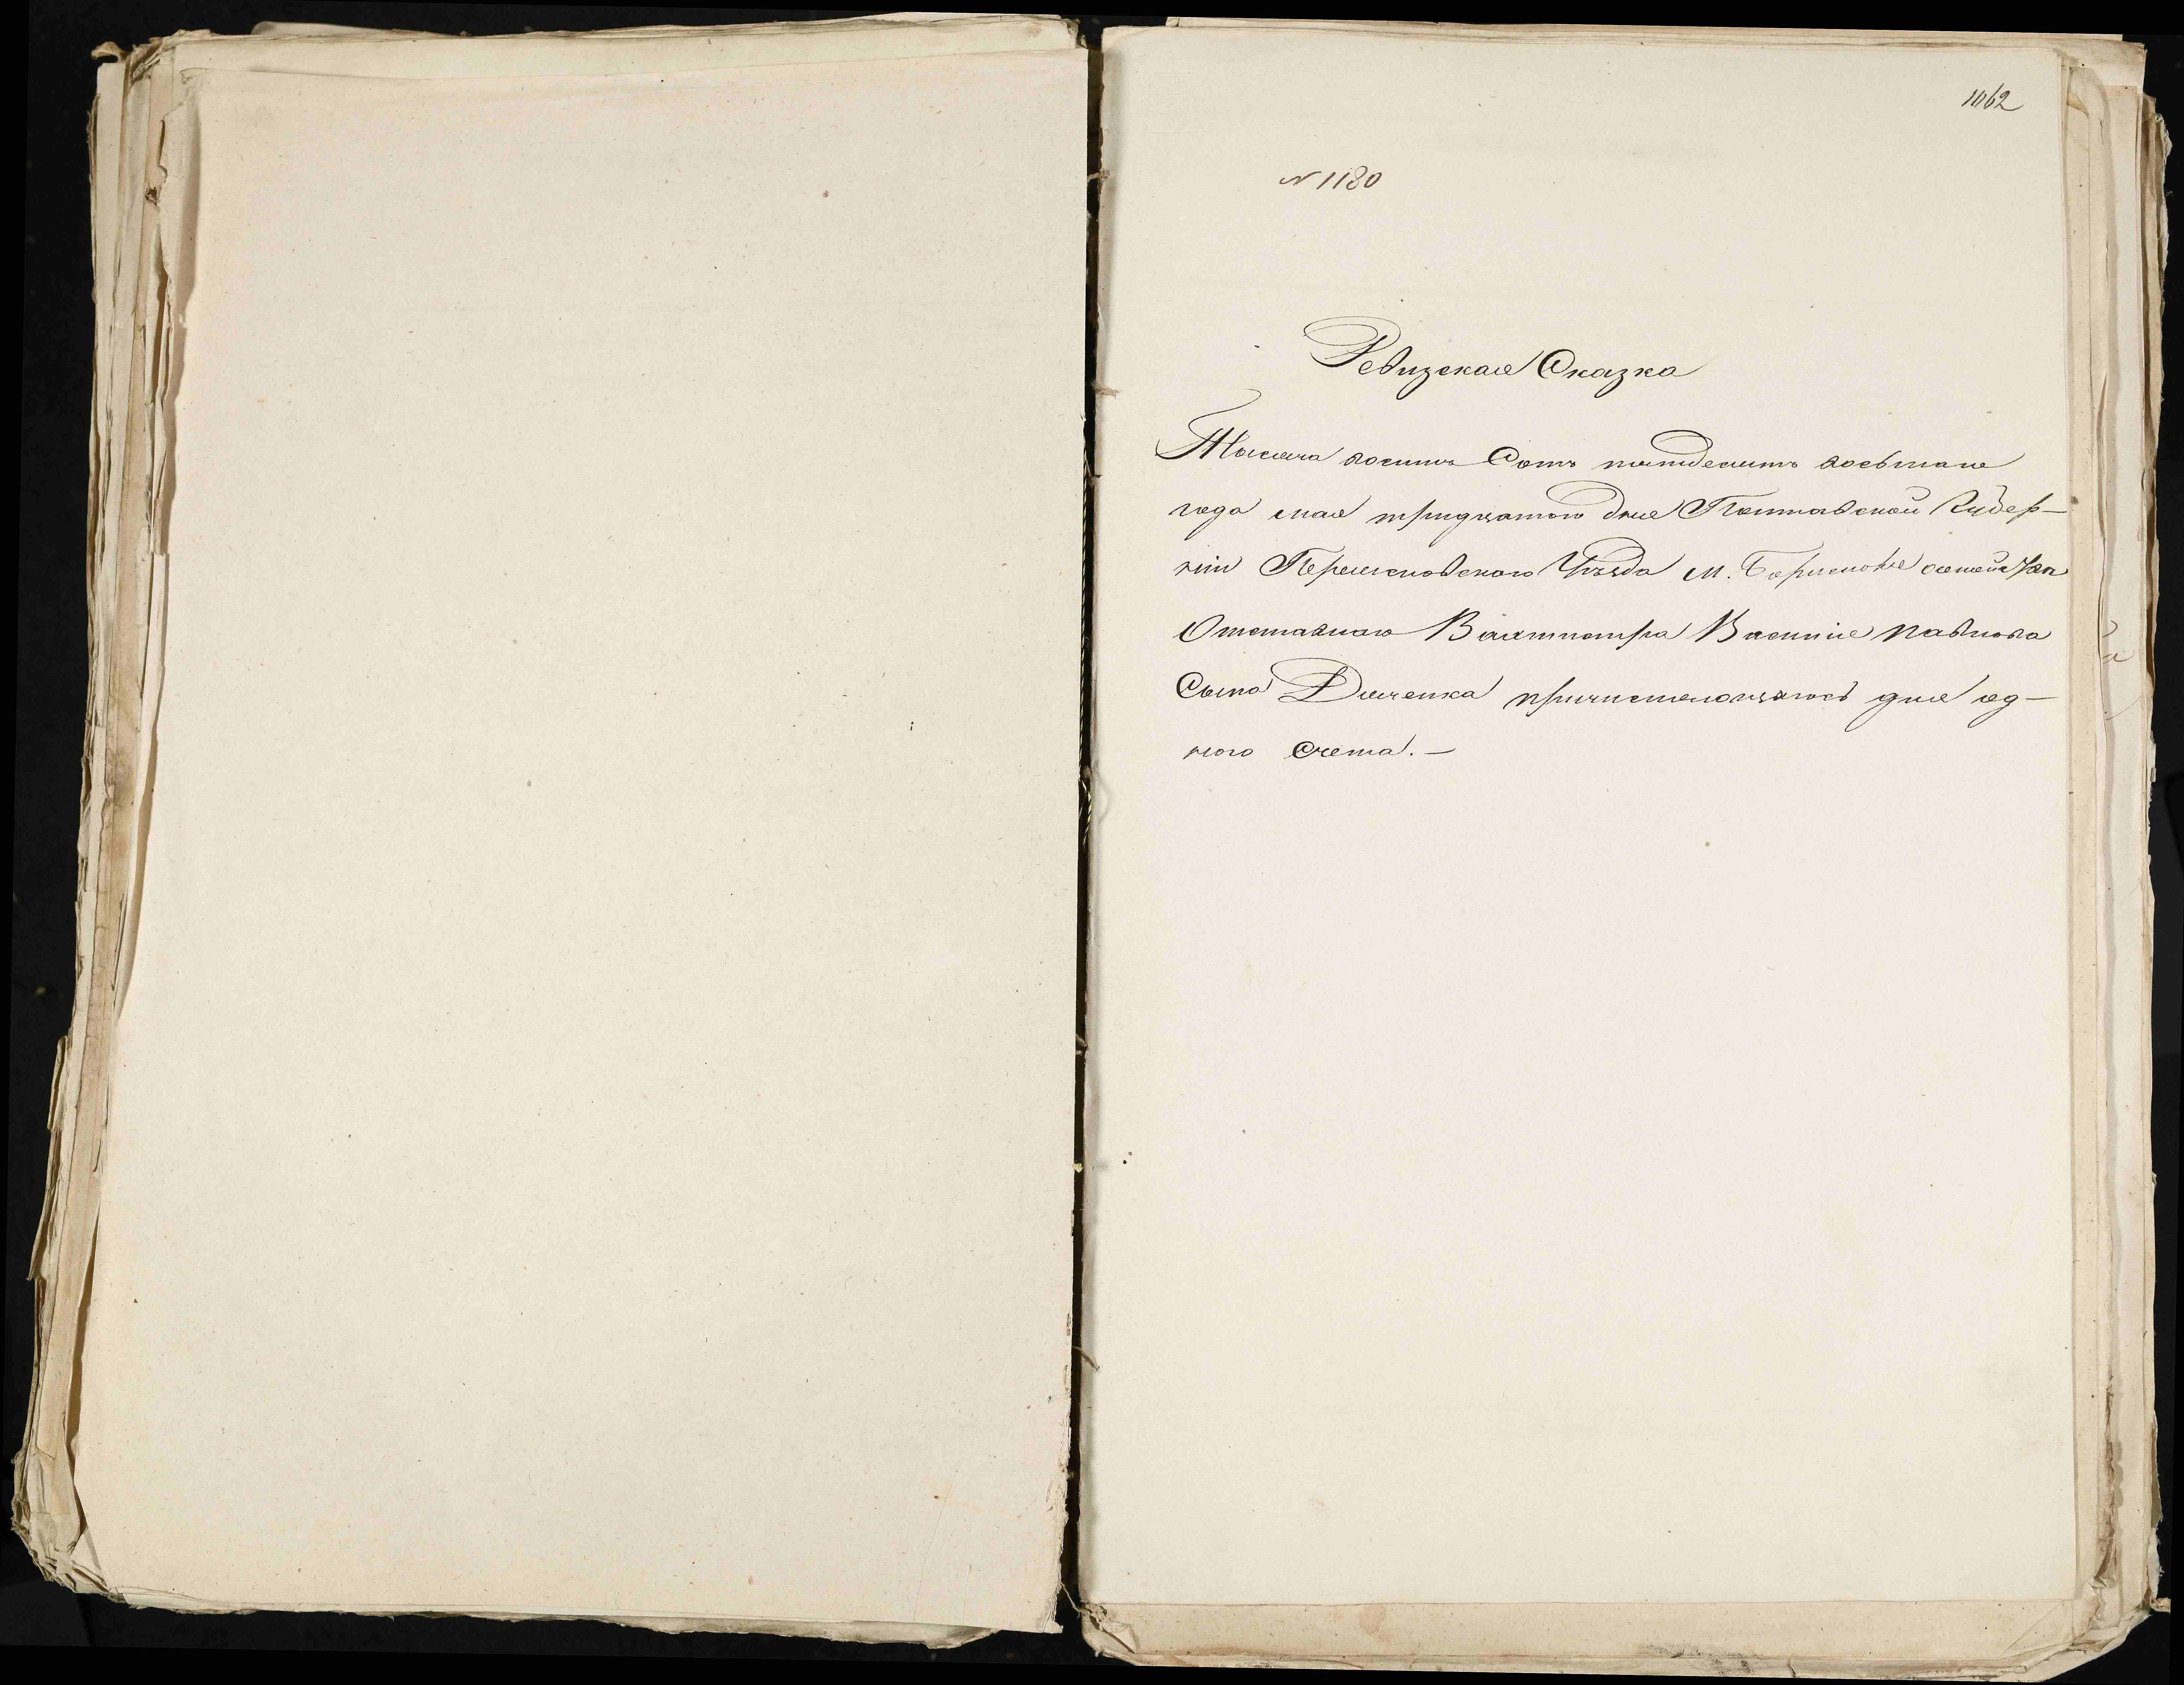 1062
N 1180
Ревизская Сказка
Тысяча восемь Сотъ пятдесятъ восьмаго
года мая тридцатого дня Полтавской Губер-
ніи Переяславского Уѣзда м. Борисполя
Отставнаго Вахтмистра Василія Павлова
Сына Дяченка причисляющагося для од-
ного Счета.-